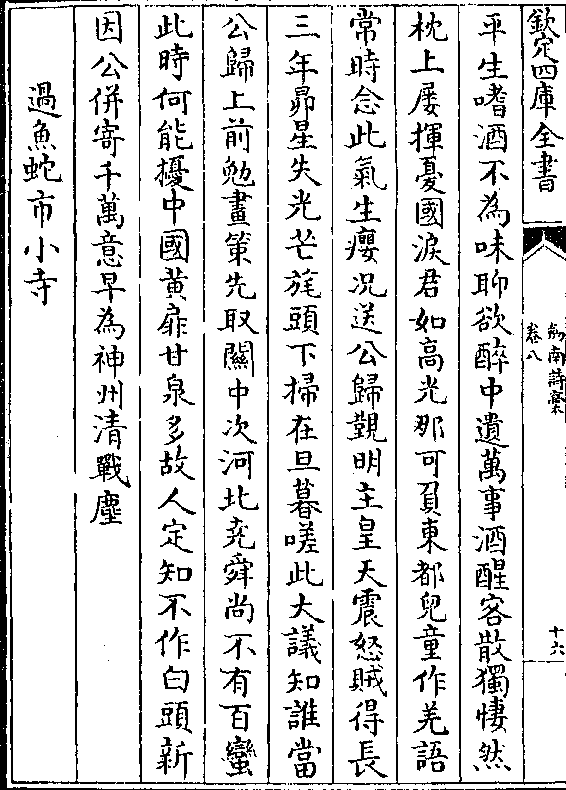 欽定四庫全書
劍南詩槀
卷八
十六
平生嗜酒不為味聊欲醉中遺萬事酒醒客散獨悽然
枕上屢揮憂國淚君如高光那可負東都兒童作羌語
常時念此氣生癭况送公歸覲明主皇天震怒賊得長
三年昴星失光芒旄頭下掃在旦暮嗟此大議知誰當
公歸上前勉畫策先取關中次河北堯舜尚不有百蠻
此時何能擾中國黄扉甘泉多故人定知不作白頭新
因公併寄千萬意早為神州清戰塵
過魚蛇市小寺